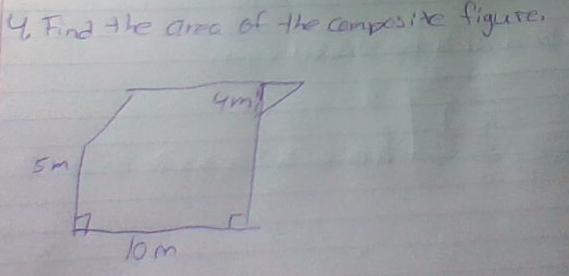 4. Find the area of the composite figure.
4m
5m
10m